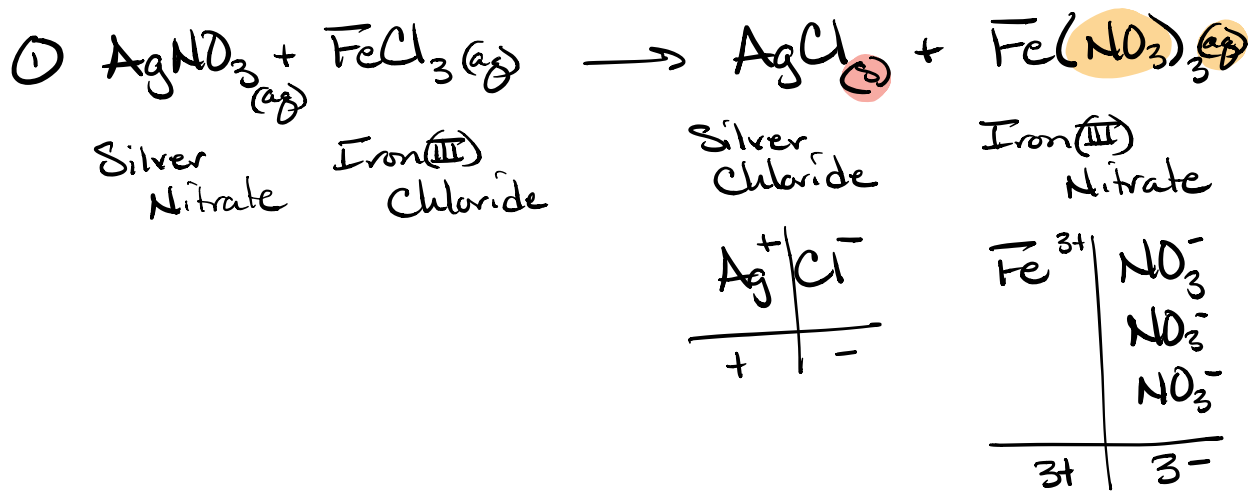 ① AgNO₃(aq) + FeCl₃(aq) → AgCl(s) + Fe(NO₃)₃(aq)
Silver Nitrate
Iron(III) Chloride
Silver Chloride
Iron(III) Nitrate
Ag⁺ | Cl⁻
+ | -
Fe³⁺ | NO₃⁻
NO₃⁻
NO₃⁻
3+ | 3-